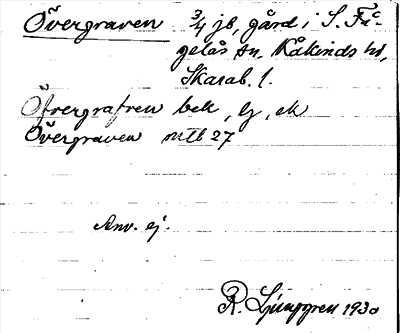 Övergraven 3/4 jb, gård i S. Få-
gelås sn, Kåkinds hd,
Skarab. l.
Öfvergrafven bek, lj, ek
Övergraven mtb 27
Anv. ej.
R. Ljunggren 1930